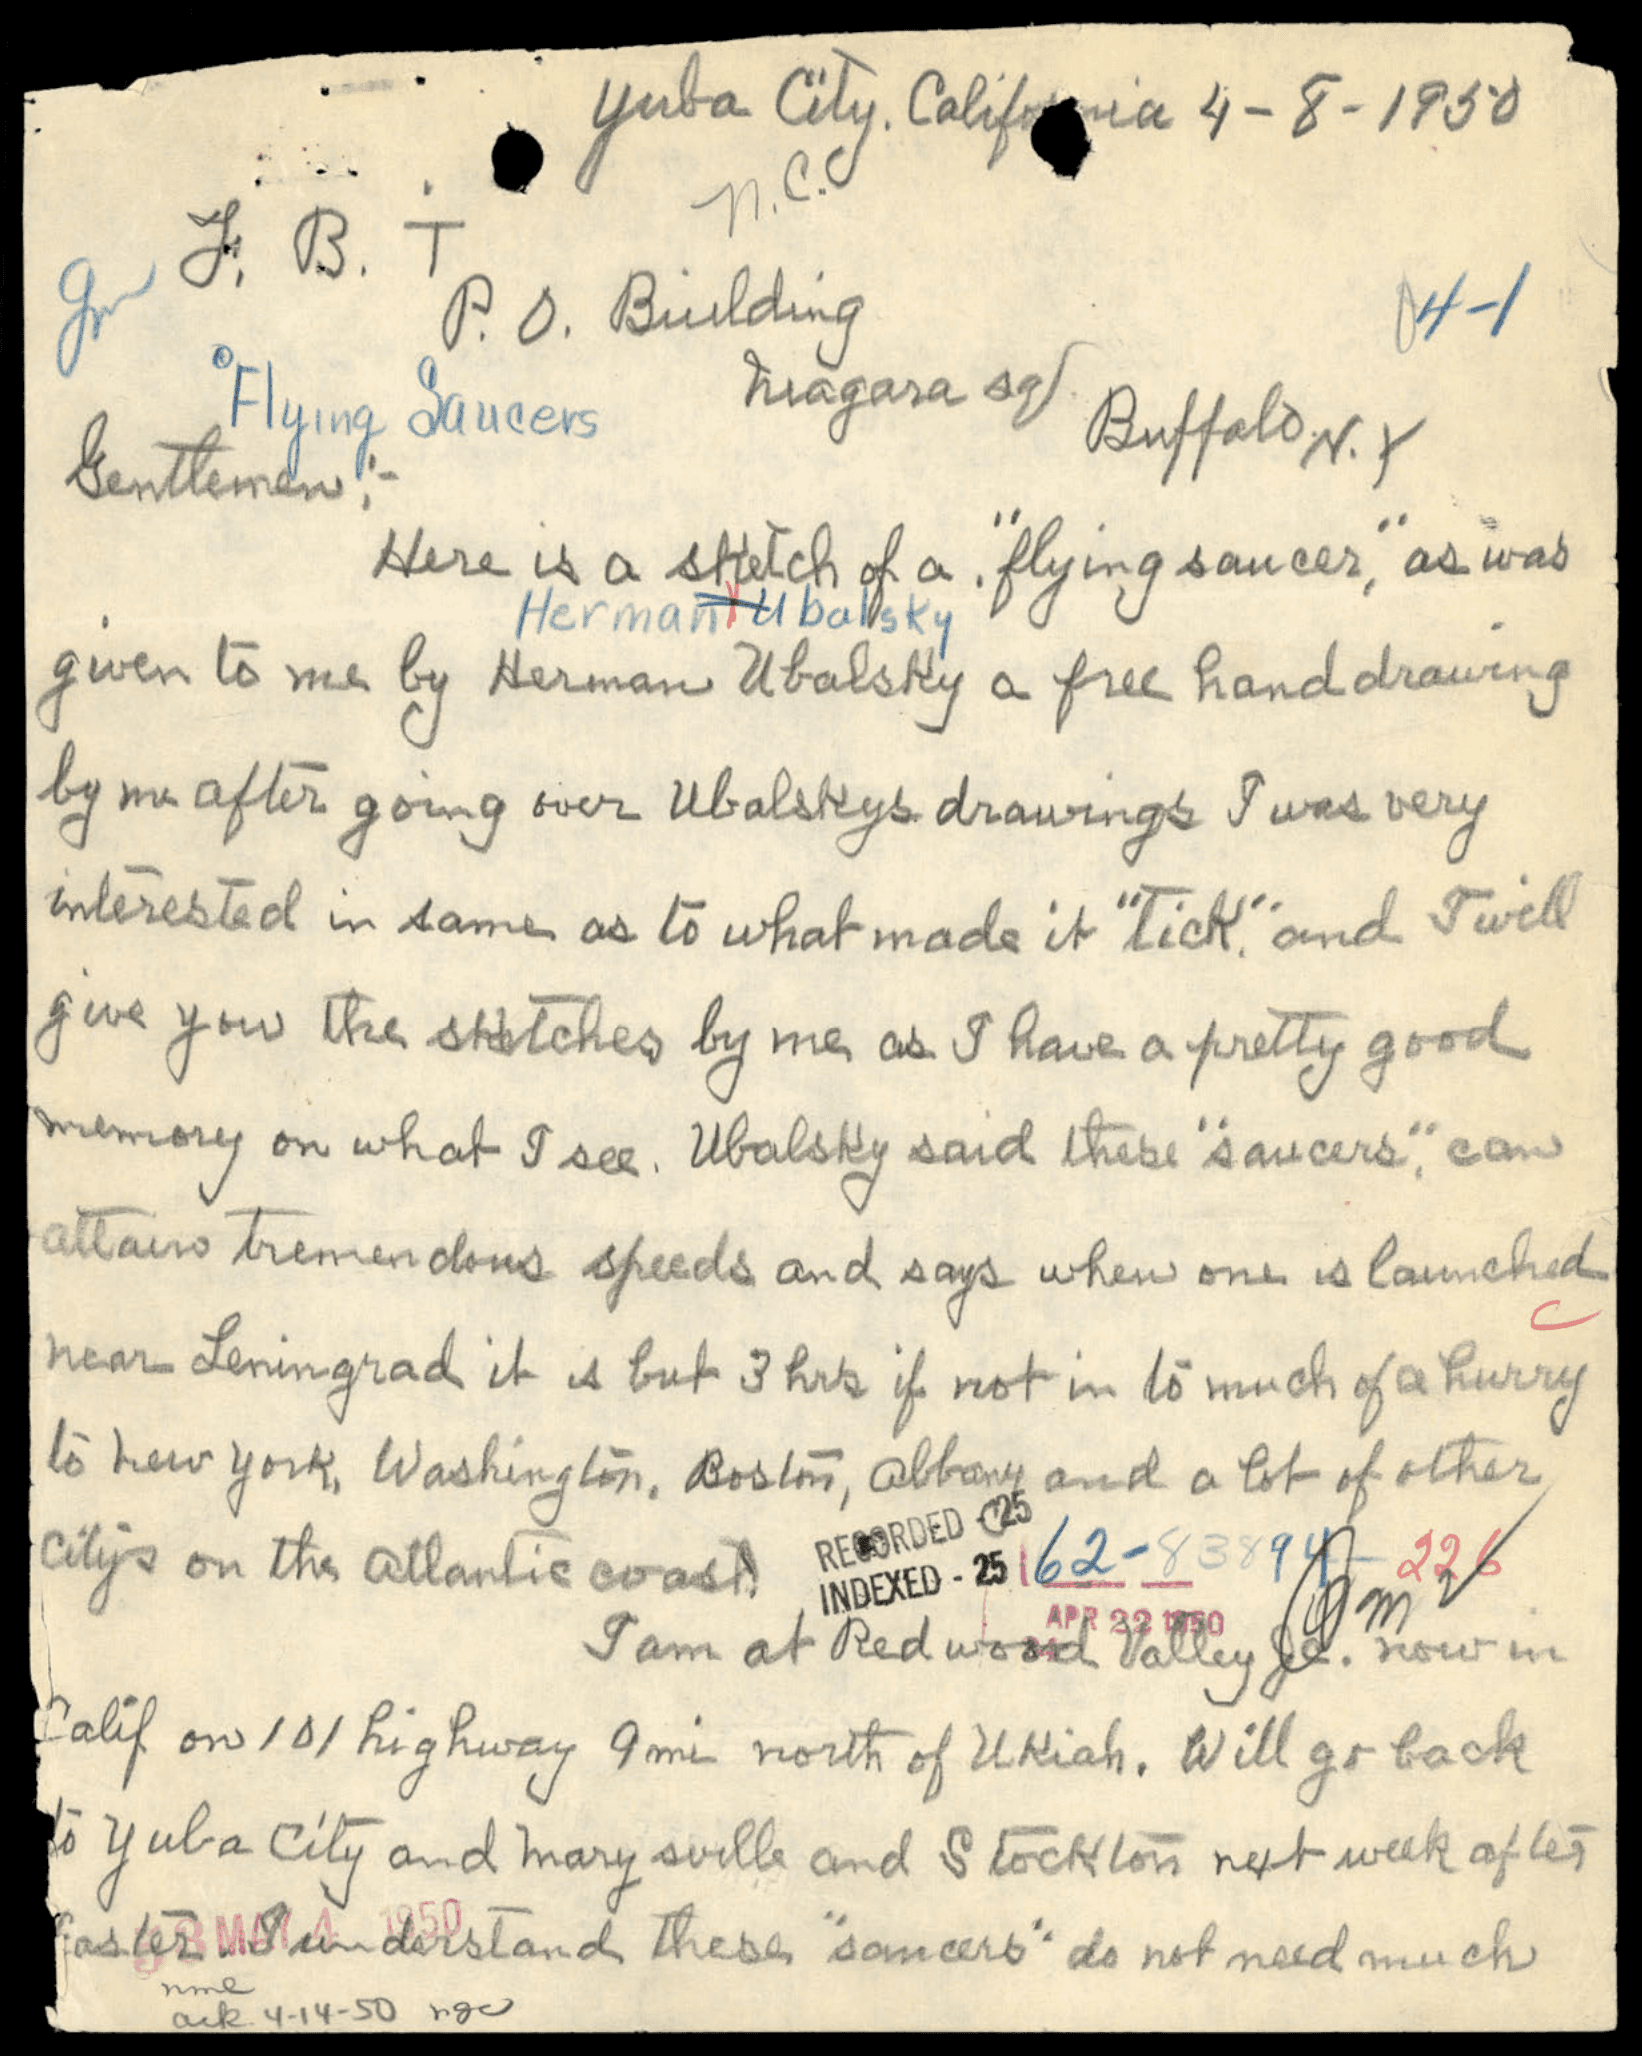 Yuba City. California 4-8-1950
N.C.
F. B. I
P. O. Building
4-1
Niagara sq.
Flying Saucers
Buffalo N.Y
Gentlemen:-
Here is a sketch of a "flying saucer," as was
Herman Ubalsky
given to me by Herman Ubalsky a free hand drawing
by me after going over Ubalskys drawings I was very
interested in same as to what made it "tick." and I will
give you the sketches by me as I have a pretty good
memory on what I see. Ubalsky said these "saucers", can
attain tremendous speeds and says when one is launched
near Leningrad it is but 3 hrs if not in to much of a hurry
to new york, Washington, Boston, Albany and a lot of other
city's on the atlantic coast.
RECORDED - 25
INDEXED - 25
62-83894-226
APR 22 1950
I am at Redwood Valley now in
Calif on 101 highway 9 mi north of Ukiah. Will go back
to Yuba City and Marysville and Stockton next week after
Easter. I understand these "saucers" do not need much
MAY 4 1950
nme
ack 4-14-50